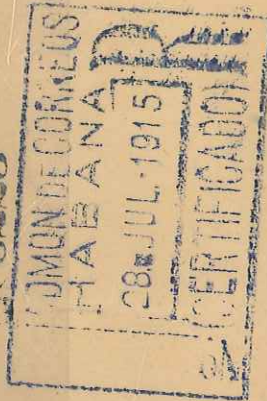 ADMON DE CORREUS
HABANA
R
28 JUL 1915
CERTIFICADO